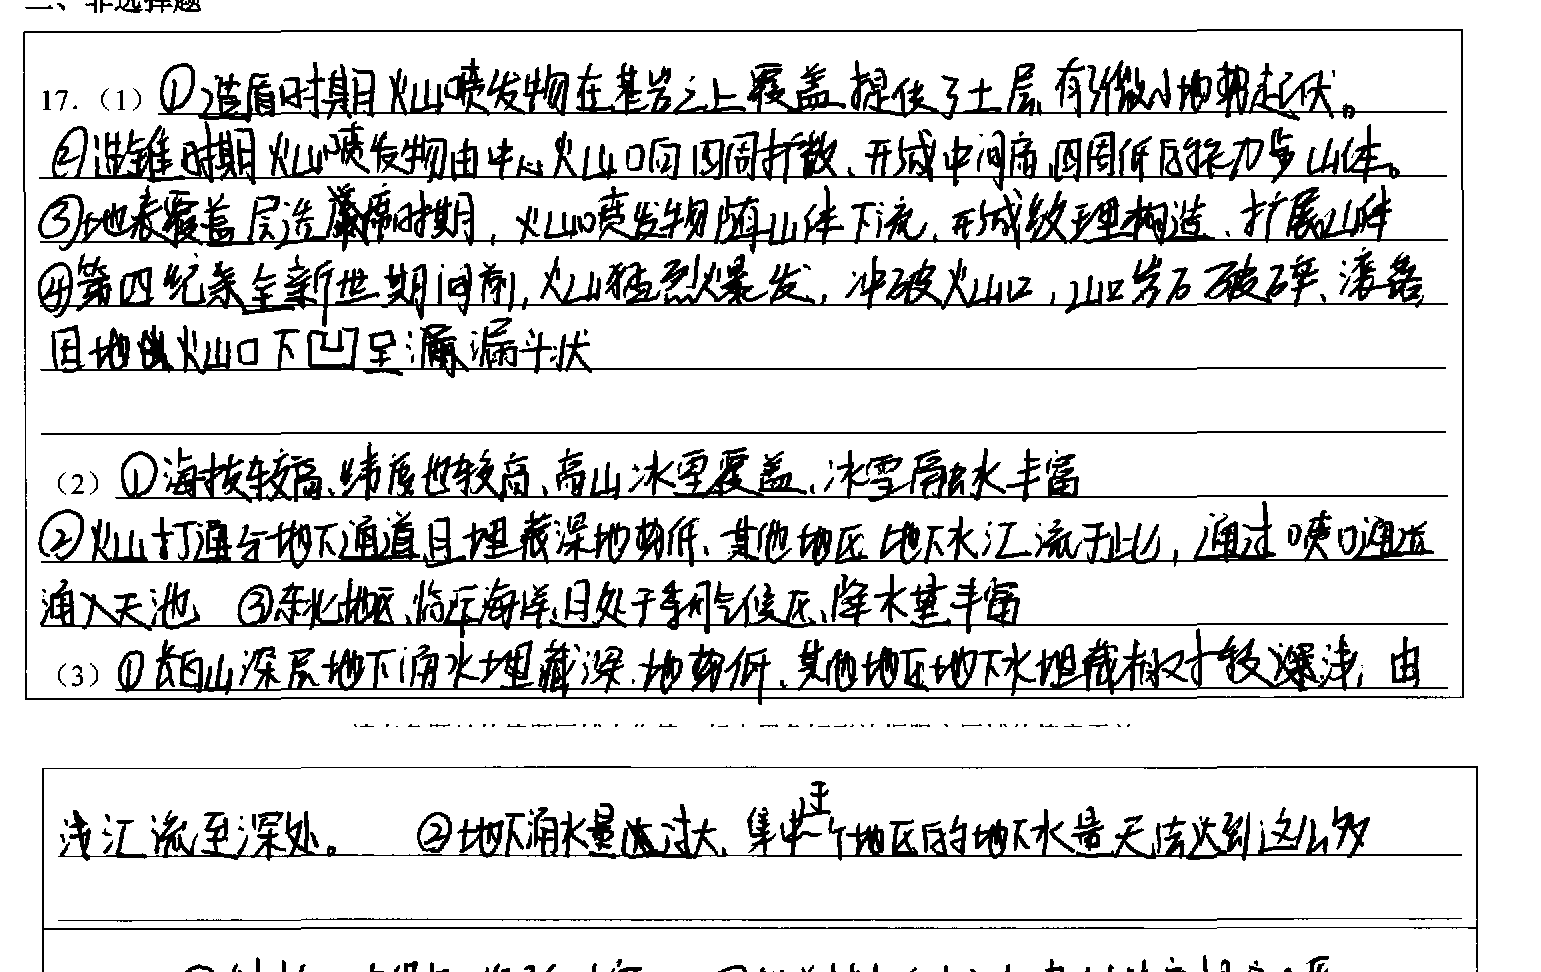 二、非选择题
17.（1）①造盾时期火山喷发物在基岩之上覆盖提供了土层,有微小地势起伏。
②造锥时期火山喷发物由中心火山口向四周扩散、形成中间高,四周低的山体。
③地表覆盖层造席时期,火山喷发物随山体下流,形成纹理构造、扩展山体
④第四纪系全新世期间前,火山猛烈爆发,冲破火山口,山口岩石破碎、滚落
且地火山口下凹呈漏斗状
（2）①海拔较高、纬度也较高、高山冰雪覆盖、冰雪融水丰富
②火山打通与地下通道且埋藏深地势低、其他地区地下水汇流于此,通过喷口通道
涌入天池 ③东北地区、临近海洋,且处于季风气候区、降水量丰富
（3）①长白山深层地下涌水埋藏深,地势低、其他地区地下水埋藏相对较浅,由
浅汇流至深处。 ②地下涌水量过大,集中于一个地区的地下水量无法达到这么多